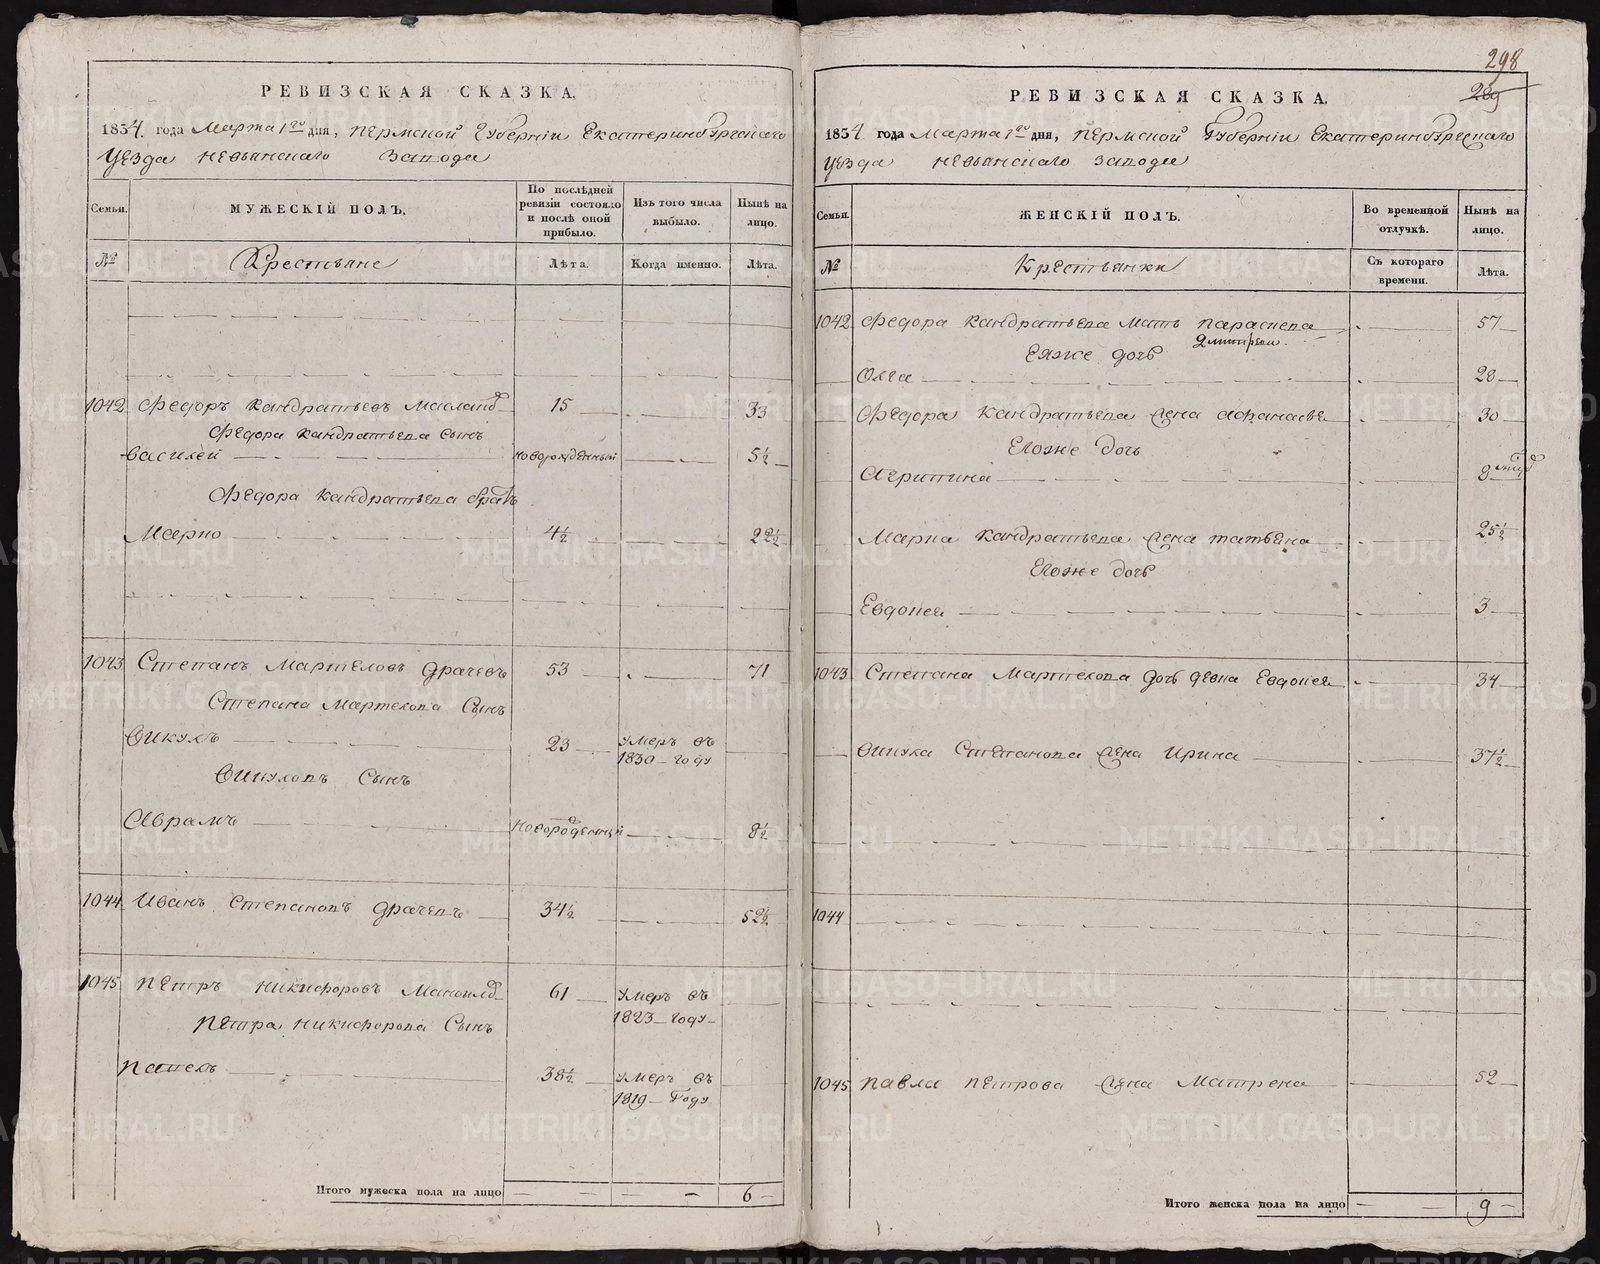 РЕВИЗСКАЯ СКАЗКА.
1834. года Марта 1го дня, Пермской Губернiи Екатеринбургскаго
Уезда Невьянскаго Завода
Семьи.
МУЖЕСКIЙ ПОЛЪ.
По послѣдней ревизiи состояло и послѣ оной прибыло.
Изъ того числа выбыло.
Нынѣ на лицо.
№
Крестьяне
Лѣта.
Когда именно.
Лѣта.
1042 Федоръ Кандратьевъ 15 33
Федора Кандратьева Сынъ
Василей новорожденный 5½
Федора Кандратьева братъ
Марко 4½ 22½
1043 Степанъ Мартеловъ Драчевъ 53 71
Степана Мартелова Сынъ
Викулъ 23 умеръ въ
1830 году
Викуловъ Сынъ
Аврамъ новорожденный 8½
1044 Иванъ Степановъ Драчевъ 34½ 52½
1045 Петръ Никифоровъ 61 умеръ въ
1823 году
Петра Никифорова Сынъ
Павелъ 38½ умеръ въ
1819 Году
Итого мужеска пола на лицо 6
298
289
РЕВИЗСКАЯ СКАЗКА.
1834. года Марта 1го дня, Пермской Губернiи Екатеринбургскаго
Уезда Невьянскаго Завода
Семьи.
ЖЕНСКIЙ ПОЛЪ.
Во временной отлучкѣ.
Нынѣ на лицо.
№
Крестьянки
Съ котораго времени.
Лѣта.
1042 Федора Кандратьева Мать Параскева 57
Дмитрева
Еяже дочь
Олга 28
Федора Кандратьева Жена 30
Егоже дочь
Агрипина
Марка Кандратьева Жена Татьяна 25½
Егоже дочь
Евдокея 3
1043 Степана Мартелова дочь девка Евдокея 34
Викула Степанова Жена Ирина 37½
1044
1045 Павла Петрова Жена Матрена 52
Итого женска пола на лицо 9
METRIKI.GASO-URAL.RU